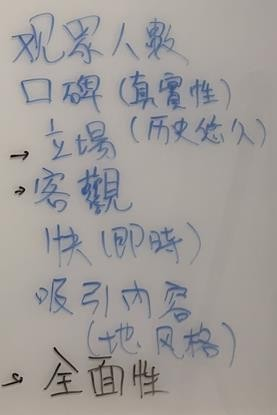 观眾人數
口碑(真實性)
(历史悠久)
→立場
→客觀
快(即時)
吸引內容
(地、风格)
→全面性